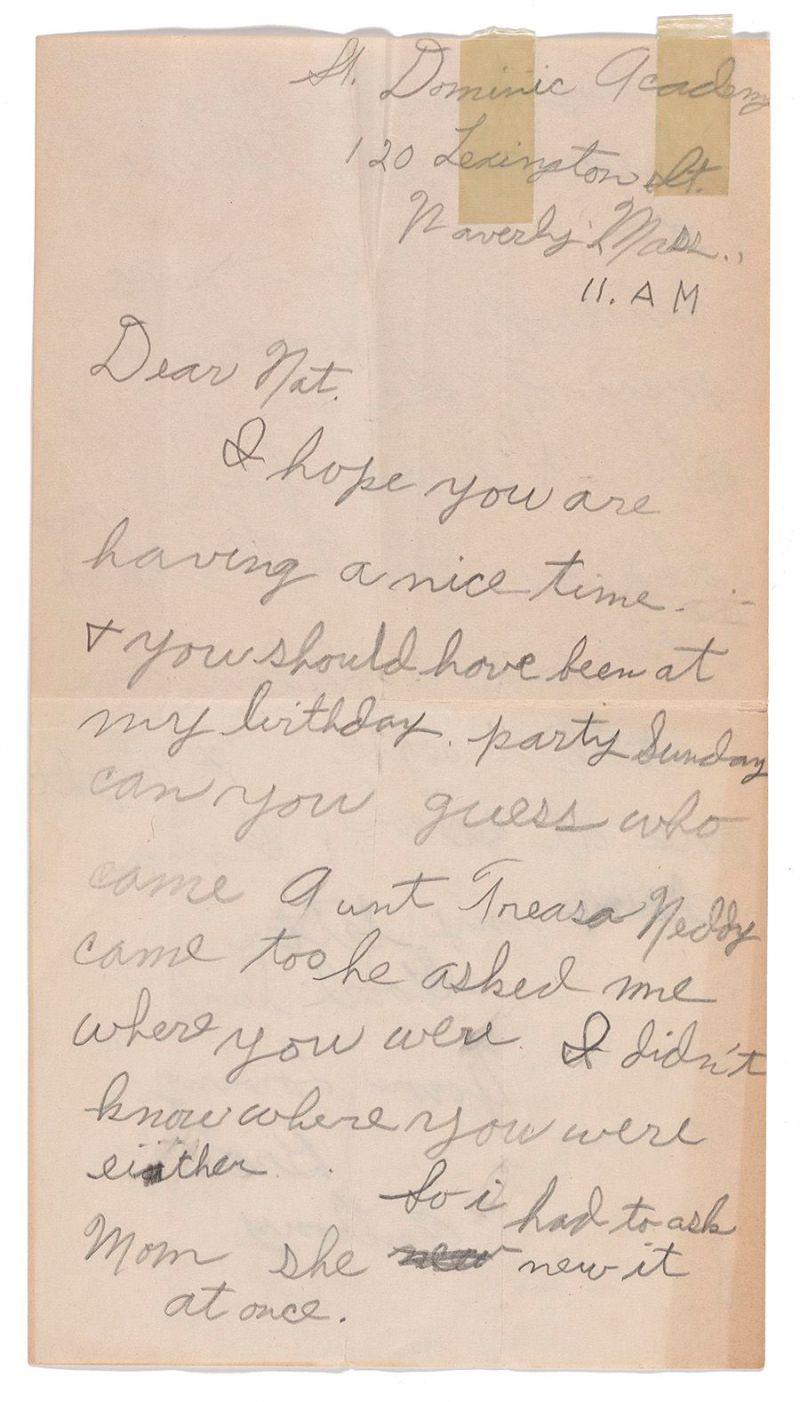 St. Dominic Academy
120 Lexington St.
Waverly Mass..
11. A M
Dear Nat.
I hope you are
having a nice time.
+ you should have been at
my birthday. party Sunday
can you guess who
came Aunt Treasa Neddy
came too he asked me
where you were. I didn't
know where you were
either.
So i had to ask
Mom she new it
at once.